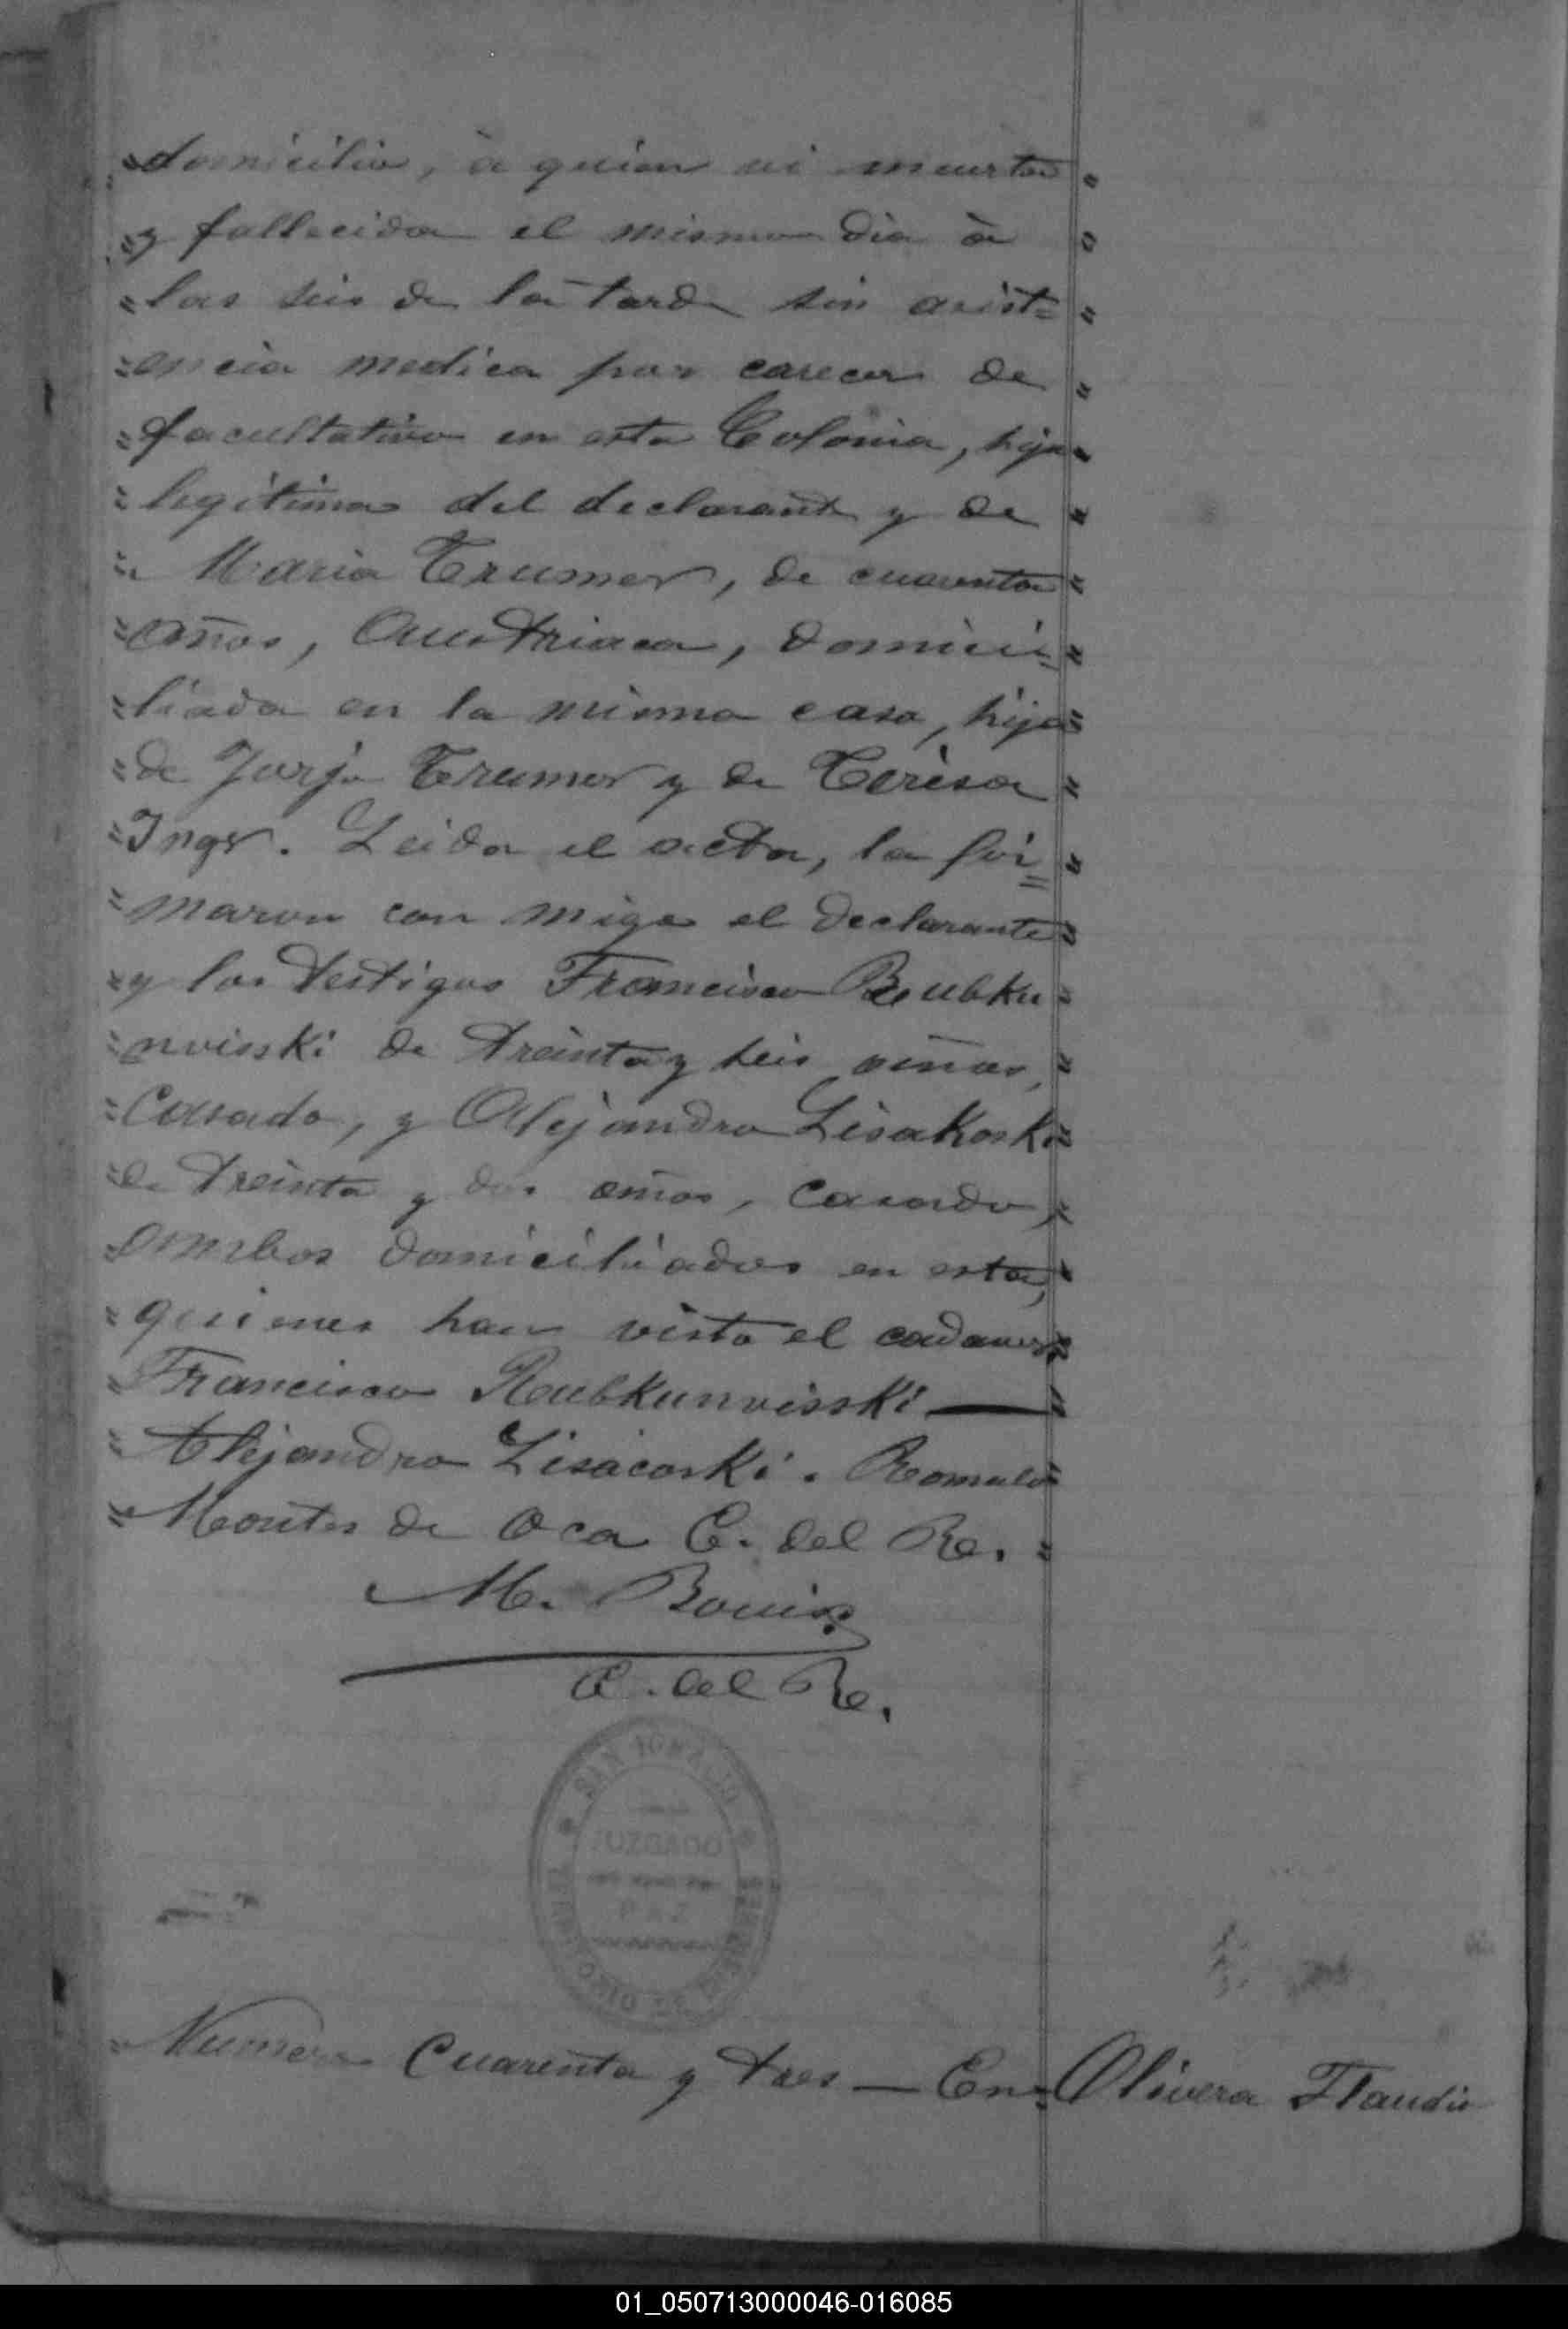 domicilio, à quien vi muerta
y fallecida el mismo dia à
las seis de la tarde sin asist=
encia medica por carecer de
facultativo en esta Colonia, hija
legitima del declarante y de
Maria Trumer, de cuarenta
años, Austriaca, domici=
liada en la misma casa, hija
de Jorje Trumer y de Teresa
Inger. Leida el acta, la fir=
maron con migo el declarante
y los testigos Francisco Reubku
nvisski de treinta y seis años,
Casado, y Alejandro Lisakoski
de treinta y dos años, Casado,
ambos domiciliados en esta,
quienes han visto el cadaver
Francisco Reubkunvisski —
Alejandro Lisacoski. Romulo
Montes de Oca E. del Re.
M. Bouix
E. del Re.
SAN IGNACIO
JUZGADO
PAZ
Numero Cuarenta y tres — En Olivera Flaudio
01_050713000046-016085